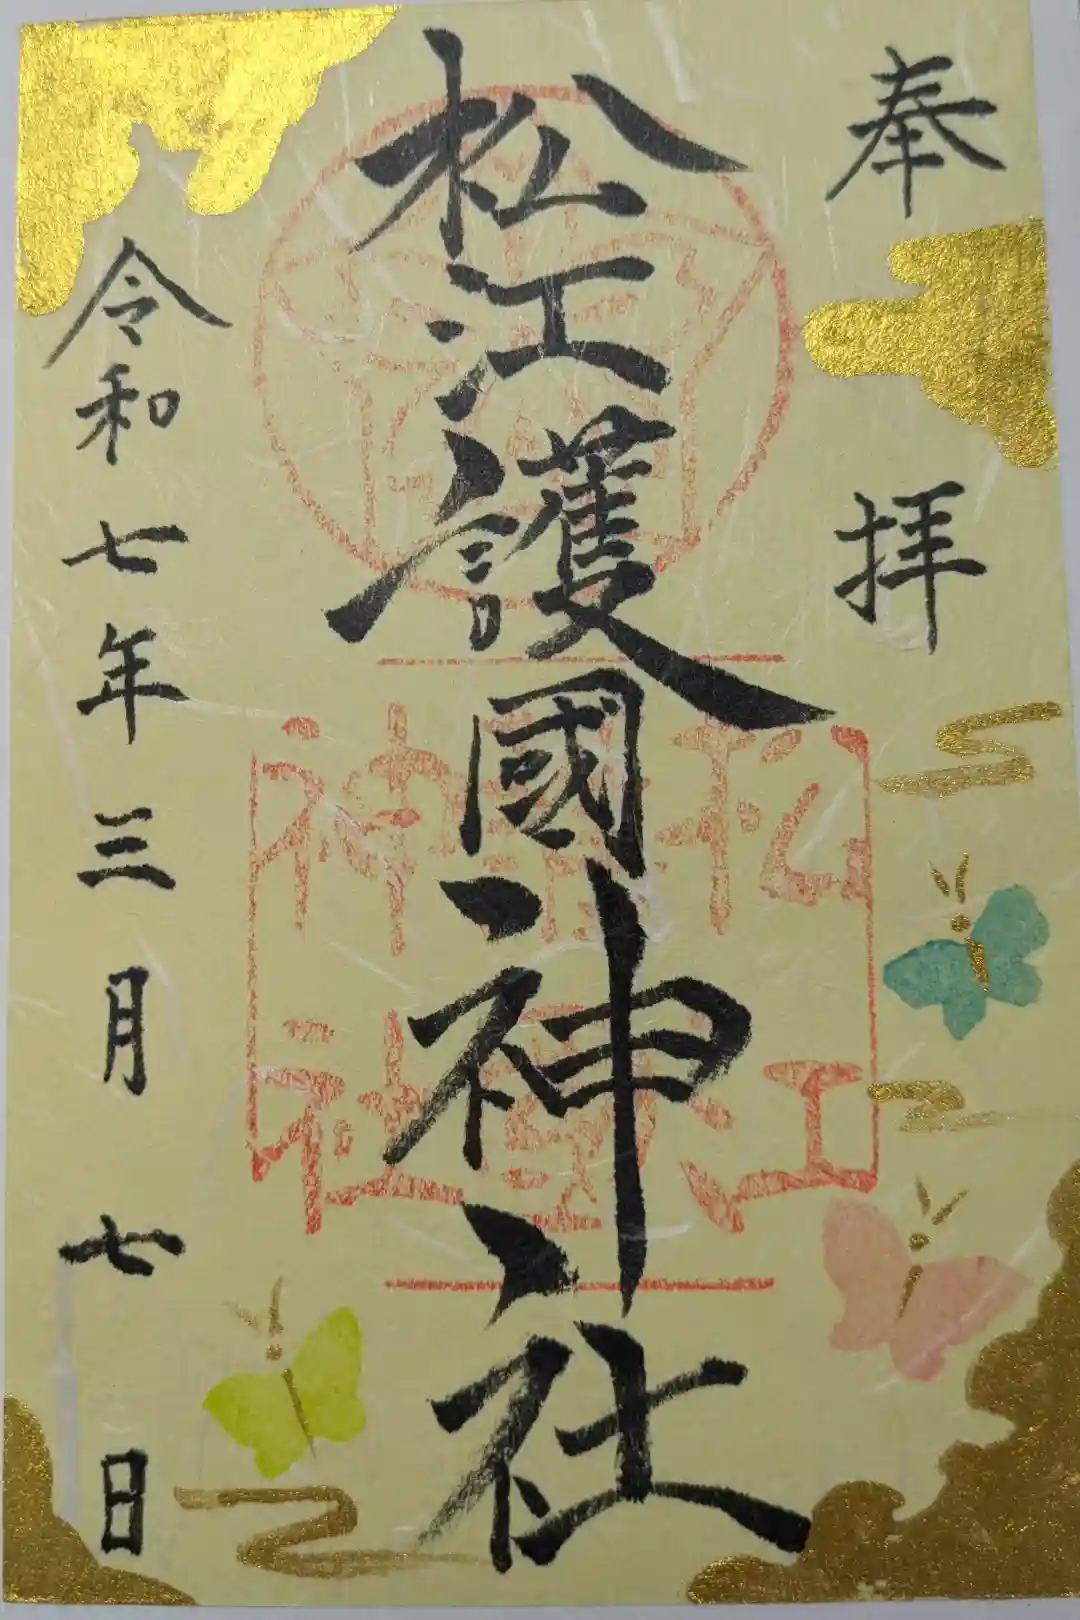 奉拝
松江護國神社
令和七年三月七日
松江護國神社